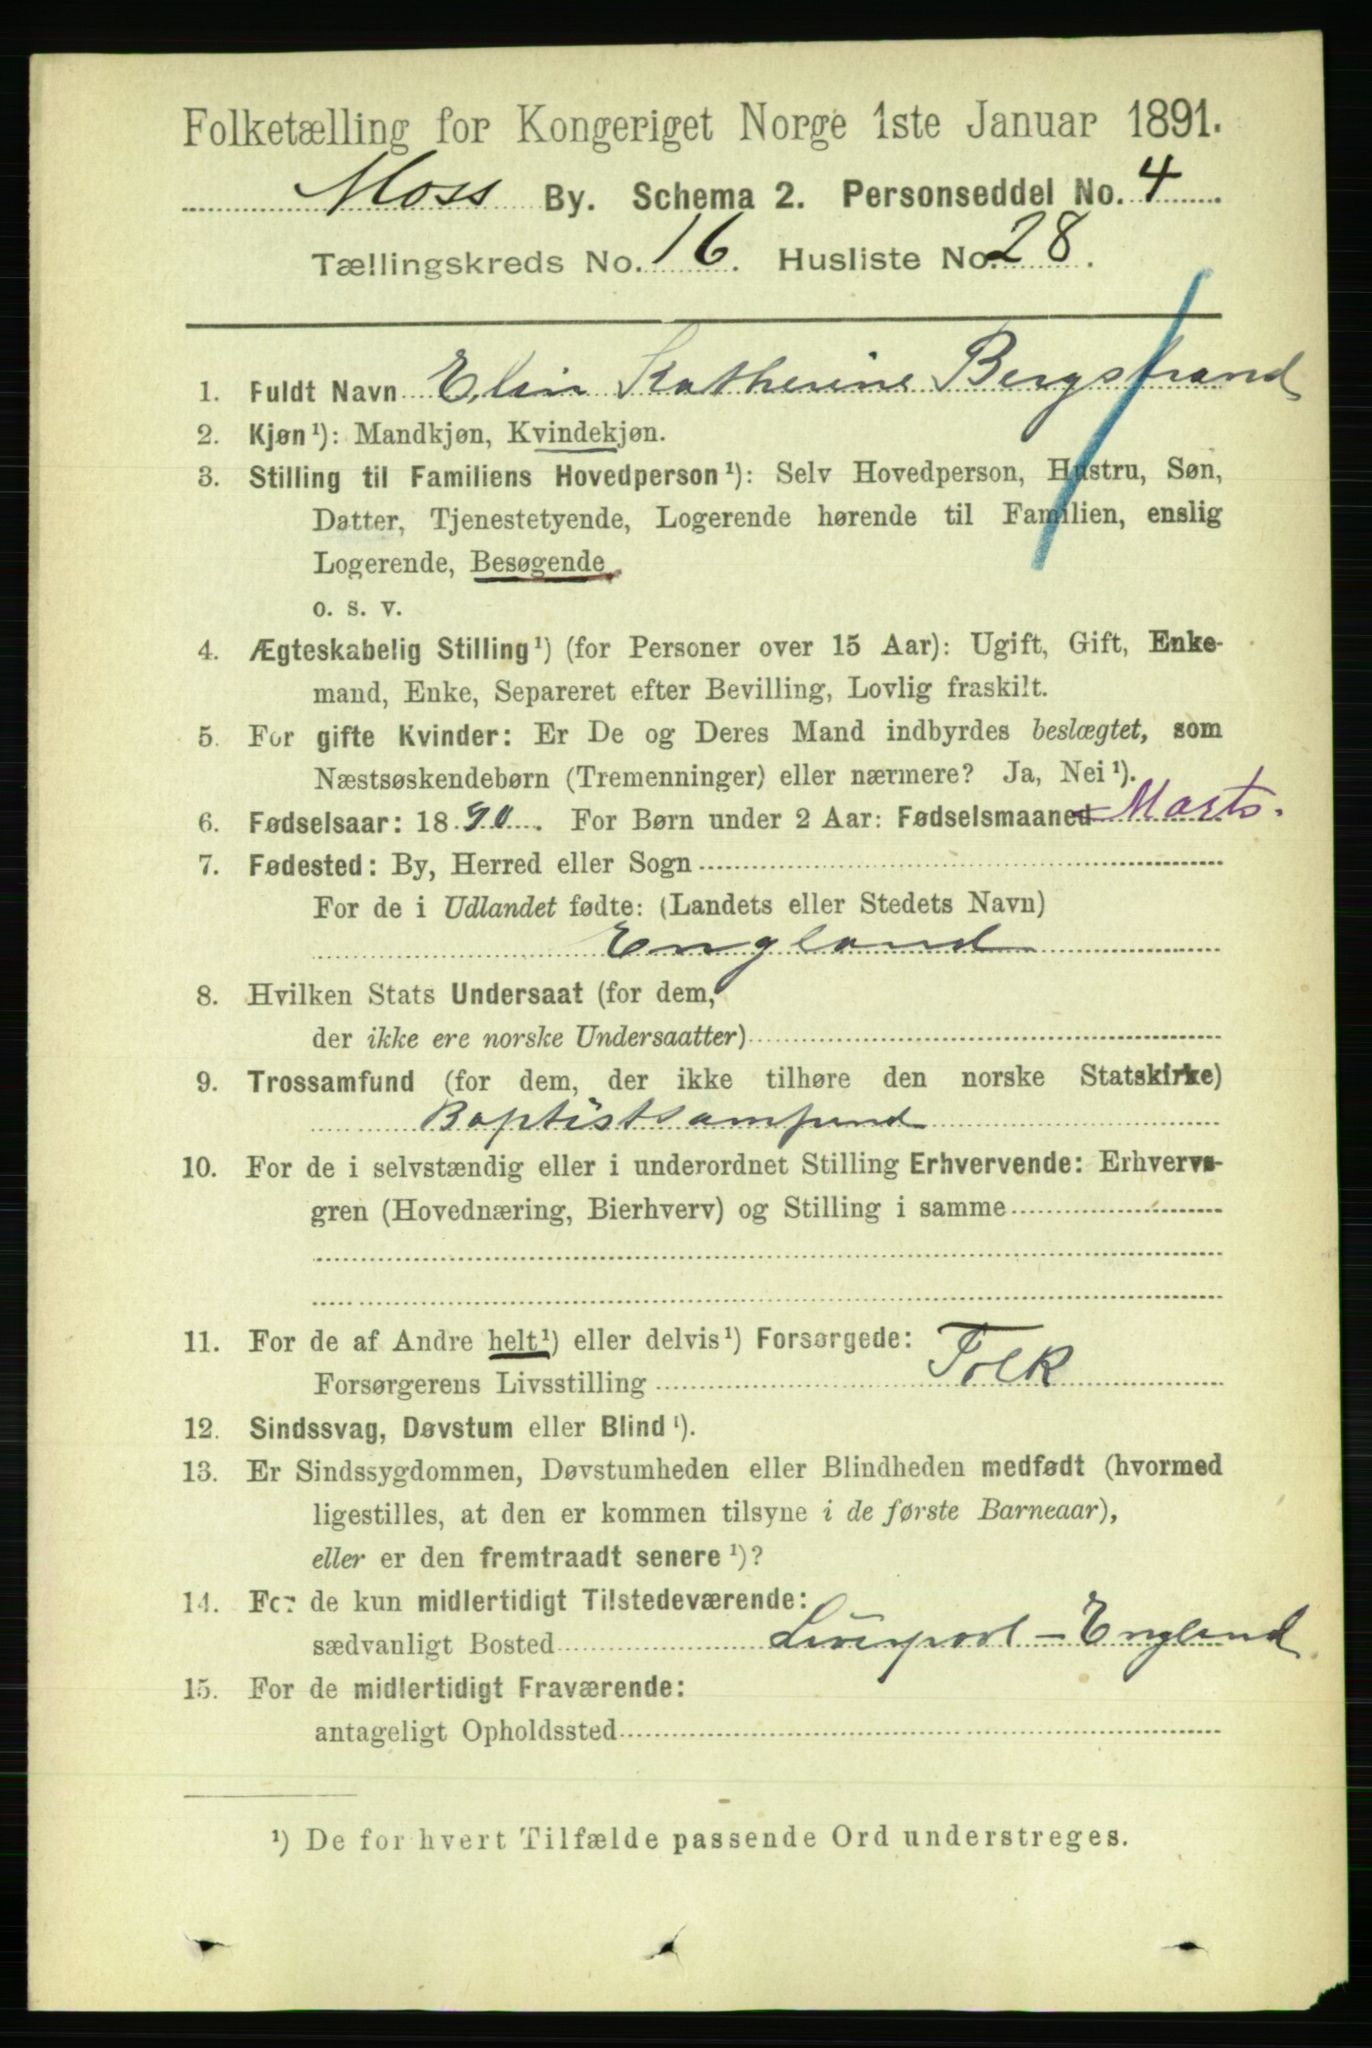 Folketælling for Kongeriget Norge 1ste Januar 1891.
Moss By. Schema 2. Personseddel No. 4
Tællingskreds No. 16. Husliste No. 28.
1. Fuldt Navn Elin Katherine Bergstrand
2. Kjøn¹): Mandkjøn, Kvindekjøn.
3. Stilling til Familiens Hovedperson¹): Selv Hovedperson, Hustru, Søn,
Datter, Tjenestetyende, Logerende hørende til Familien, enslig
Logerende, Besøgende
o. s. v.
4. Ægteskabelig Stilling¹) (for Personer over 15 Aar): Ugift, Gift, Enke-
mand, Enke, Separeret efter Bevilling, Lovlig fraskilt.
5. For gifte Kvinder: Er De og Deres Mand indbyrdes beslægtet, som
Næstsøskendebørn (Tremenninger) eller nærmere? Ja, Nei¹).
6. Fødselsaar: 1890. For Børn under 2 Aar: Fødselsmaaned Marts.
7. Fødested: By, Herred eller Sogn
For de i Udlandet fødte: (Landets eller Stedets Navn)
England
8. Hvilken Stats Undersaat (for dem,
der ikke ere norske Undersaatter)
9. Trossamfund (for dem, der ikke tilhøre den norske Statskirke)
Baptistsamfund
10. For de i selvstændig eller i underordnet Stilling Erhvervende: Erhvervs-
gren (Hovednæring, Bierhverv) og Stilling i samme
11. For de af Andre helt¹) eller delvis¹) Forsørgede:
Forsørgerens Livsstilling Tolk
12. Sindssvag, Døvstum eller Blind¹).
13. Er Sindssygdommen, Døvstumheden eller Blindheden medfødt (hvormed
ligestilles, at den er kommen tilsyne i de første Barneaar),
eller er den fremtraadt senere¹)?
14. For de kun midlertidigt Tilstedeværende:
sædvanligt Bosted Liverpool - England
15. For de midlertidigt Fraværende:
antageligt Opholdssted
¹) De for hvert Tilfælde passende Ord understreges.